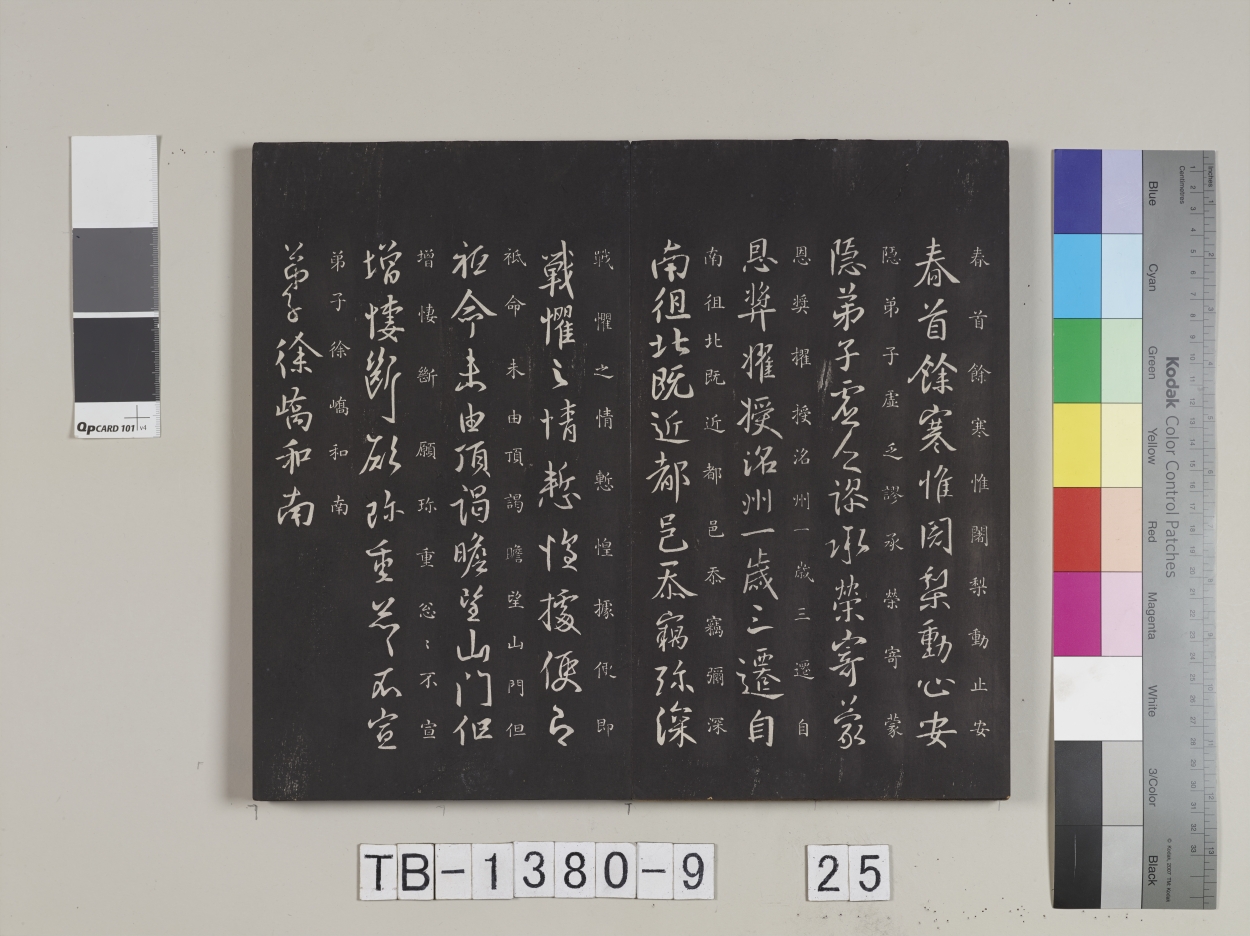 春首餘寒惟闍梨動止安
春首餘寒惟闍梨動心安
隱弟子虛乏謬承榮寄蒙
隐弟子虚乏謬承榮寄蒙
恩奬擢授洺州一歲三遷自
恩奬擢授洺州一歲三遷自
南徂北既近都邑忝竊彌深
南徂北既近都邑忝竊弥深
戰懼之情慙惶據便即
戰懼之情慙惶據便即
祇命未由頂謁瞻望山門但
祇命未由頂謁瞻望山門但
增悽斷願珎重忩〻不宣
增悽斷願珎重忩〻不宣
弟子徐嶠和南
弟子徐嶠和南
QPCARD 101 v4
TB-1380-9 25
Kodak Color Control Patches
Blue Cyan Green Yellow Red Magenta White 3/Color Black
Inches
Centimetres